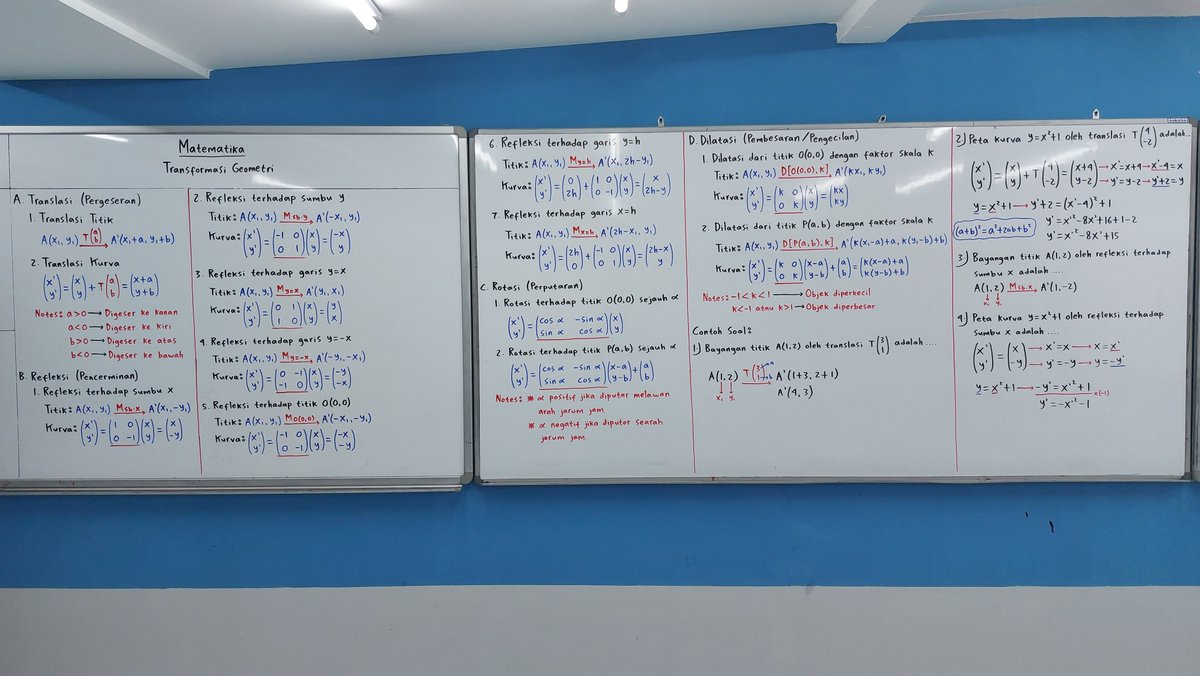 Matematika
Transformasi Geometri
A. Translasi (Pergeseran)
1. Translasi Titik
A(x₁, y₁) T(a b)→ A'(x₁+a, y₁+b)
2. Translasi Kurva
(x' y') = (x y) + T(a b) = (x+a y+b)
Notes: a>0 → Digeser ke kanan
a<0 → Digeser ke kiri
b>0 → Digeser ke atas
b<0 → Digeser ke bawah
B. Refleksi (Pencerminan)
1. Refleksi terhadap sumbu x
Titik: A(x₁, y₁) Msb.x→ A'(x₁, -y₁)
Kurva: (x' y') = (1 0 0 -1)(x y) = (x -y)
2. Refleksi terhadap sumbu y
Titik: A(x₁, y₁) Msb.y→ A'(-x₁, y₁)
Kurva: (x' y') = (-1 0 0 1)(x y) = (-x y)
3. Refleksi terhadap garis y=x
Titik: A(x₁, y₁) My=x→ A'(y₁, x₁)
Kurva: (x' y') = (0 1 1 0)(x y) = (y x)
4. Refleksi terhadap garis y=-x
Titik: A(x₁, y₁) My=-x→ A'(-y₁, -x₁)
Kurva: (x' y') = (0 -1 -1 0)(x y) = (-y -x)
5. Refleksi terhadap titik O(0,0)
Titik: A(x₁, y₁) MO(0,0)→ A'(-x₁, -y₁)
Kurva: (x' y') = (-1 0 0 -1)(x y) = (-x -y)
6. Refleksi terhadap garis y=h
Titik: A(x₁, y₁) My=h→ A'(x₁, 2h-y₁)
Kurva: (x' y') = (0 2h) + (1 0 0 -1)(x y) = (x 2h-y)
7. Refleksi terhadap garis x=h
Titik: A(x₁, y₁) Mx=h→ A'(2h-x₁, y₁)
Kurva: (x' y') = (2h 0) + (-1 0 0 1)(x y) = (2h-x y)
C. Rotasi (Perputaran)
1. Rotasi terhadap titik O(0,0) sejauh α
(x' y') = (cos α -sin α sin α cos α)(x y)
2. Rotasi terhadap titik P(a,b) sejauh α
(x' y') = (cos α -sin α sin α cos α)(x-a y-b) + (a b)
Notes: * α positif jika diputar melawan
arah jarum jam.
* α negatif jika diputar searah
jarum jam.
D. Dilatasi (Pembesaran/Pengecilan)
1. Dilatasi dari titik O(0,0) dengan faktor skala k
Titik: A(x₁, y₁) D[O(0,0), k]→ A'(kx₁, ky₁)
Kurva: (x' y') = (k 0 0 k)(x y) = (kx ky)
2. Dilatasi dari titik P(a,b) dengan faktor skala k
Titik: A(x₁, y₁) D[P(a,b), k]→ A'(k(x₁-a)+a, k(y₁-b)+b)
Kurva: (x' y') = (k 0 0 k)(x-a y-b) + (a b) = (k(x-a)+a k(y-b)+b)
Notes: -1<k<1 → Objek diperkecil
k<-1 atau k>1 → Objek diperbesar
Contoh Soal:
1.) Bayangan titik A(1,2) oleh translasi T(3 1) adalah....
A(1,2) T(3→a 1→b)→ A'(1+3, 2+1)
x₁ y₁ A'(4,3)
2.) Peta kurva y=x²+1 oleh translasi T(4 -2) adalah...
(x' y') = (x y) + T(4 -2) = (x+4 y-2) → x'=x+4 → x'-4=x
→ y'=y-2 → y'+2=y
y=x²+1 → y'+2=(x'-4)²+1
(a+b)²=a²+2ab+b²
y'=x'²-8x'+16+1-2
y'=x'²-8x'+15
3.) Bayangan titik A(1,2) oleh refleksi terhadap
sumbu x adalah ....
A(1,2) Msb.x→ A'(1,-2)
x₁ y₁
4.) Peta kurva y=x²+1 oleh refleksi terhadap
sumbu x adalah ....
(x' y') = (x -y) → x'=x → x=x'
→ y'=-y → y=-y'
y=x²+1 → -y'=x'²+1
x(-1)
y'=-x'²-1